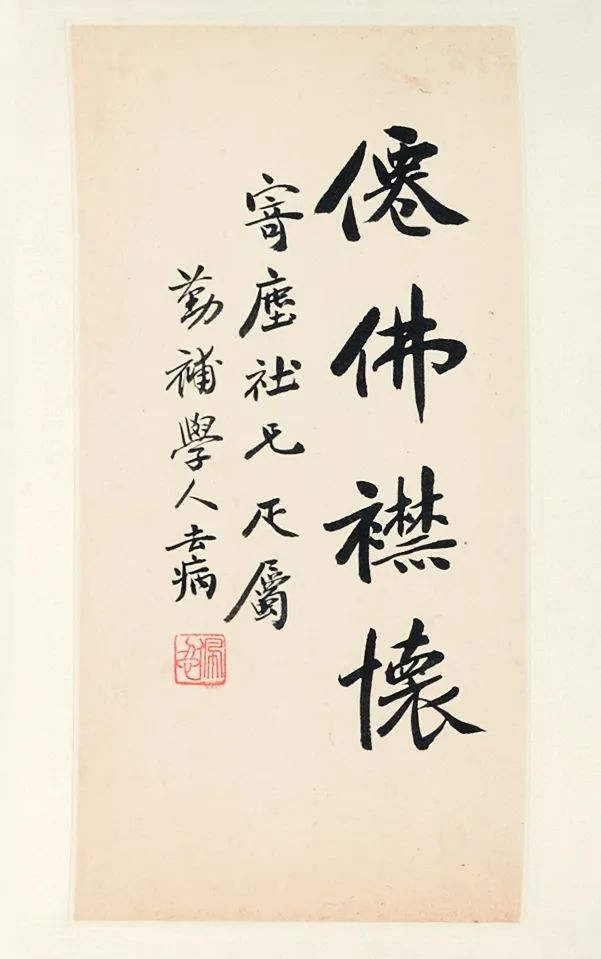 僊佛襟懷
寄塵社兄疋屬
勤補學人去病